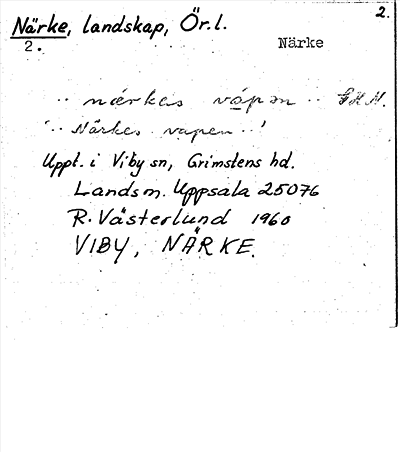 2.
Närke, landskap, Ör. l.
2. Närke
·· närkas våpen ·· G H M.
'·· Närkes vapen ··'
Uppt. i Viby sn, Grimstens hd.
Landsm. Uppsala 25076
R. Västerlund 1960
VIBY, NÄRKE.